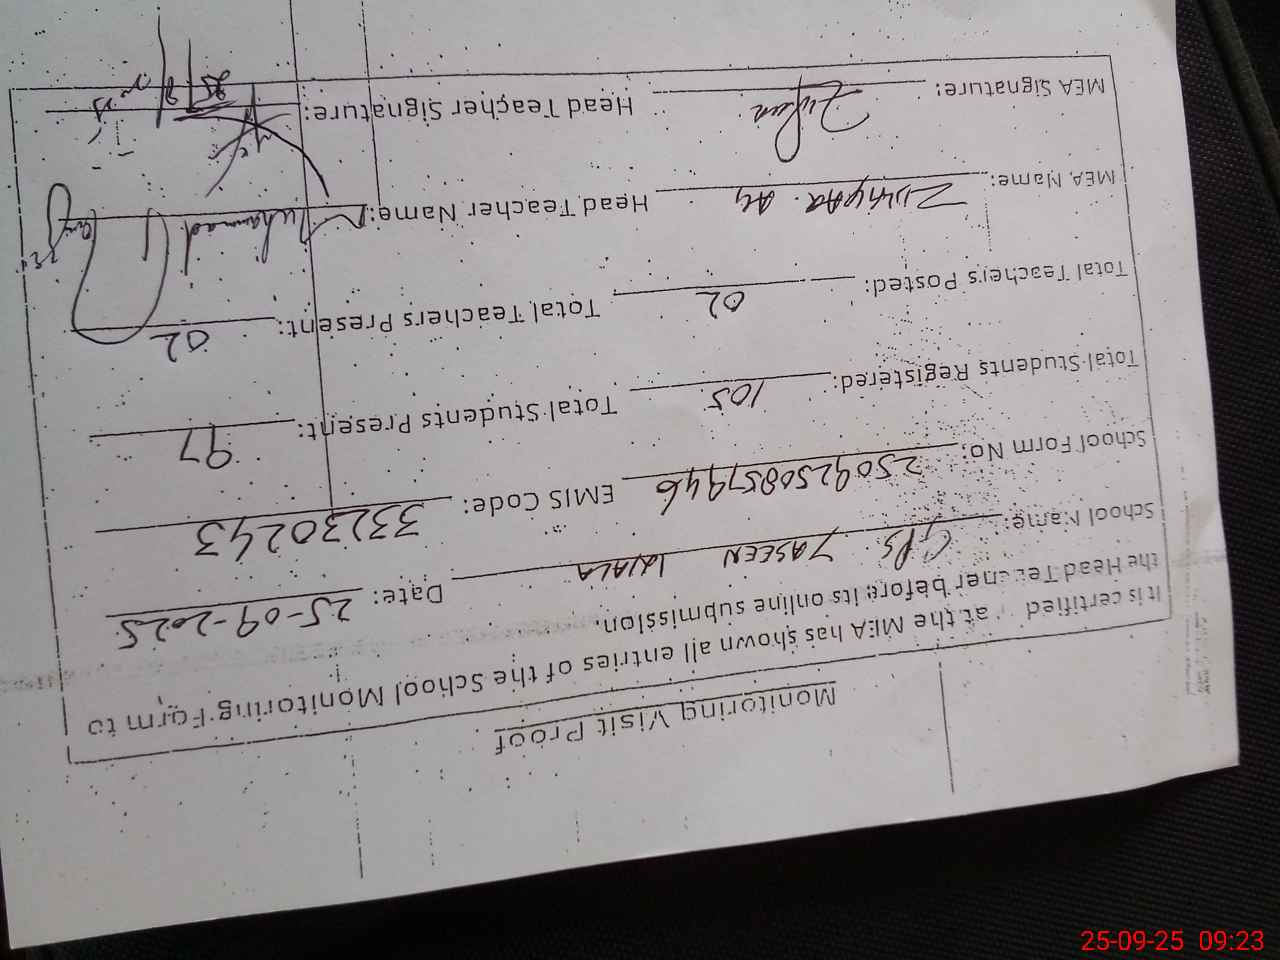 Monitoring Visit Proof
It is certified that the MEA has shown all entries of the School Monitoring Form to
the Head Teacher before its online submission.
School Name: GPS YASEEN WALA Date: 25-09-2025
School Form No: 250925085746 EMIS Code: 33230243
Total Students Registered: 105 Total Students Present: 97
Total Teachers Posted: 02 Total Teachers Present: 02
MEA Name: Zulfiqar Ali Head Teacher Name: Muhammad
MEA Signature: Head Teacher Signature:
25-09-25 09:23